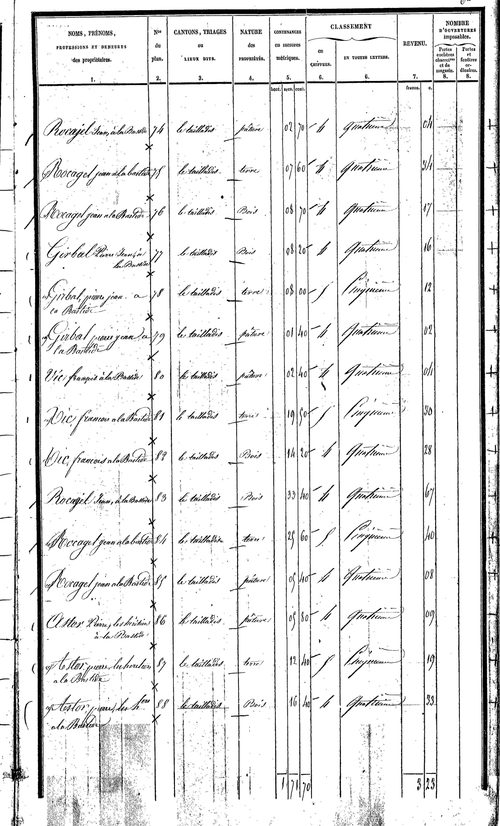 NOMS, PRÉNOMS, PROFESSIONS ET DEMEURES des propriétaires. Nos du plan. CANTONS, TRIAGES ou LIEUX DITS. NATURE des PROPRIÉTÉS. CONTENANCES EN MESURES MÉTRIQUES. CLASSEMENT en CHIFFRES. EN TOUTES LETTRES. REVENU. NOMBRE D'OUVERTURES imposables. Portes et fenêtres ordinaires.
1. 2. 3. 4. 5. 6. 6. 7. 8. 8.
hect. ares. cent. francs. c.
Rocagel Jean, à la Bastide 74 le taillades pature 02 70 4 Quatrième 04
Rocagel jean a la bastide 75 le taillades terre 07 60 4 Quatrième 34
Rocagel jean a la Bastide 76 le taillades Bois 08 70 4 Quatrième 17
Girbal Pierre Jean à la Bastide 77 le taillades Bois 08 20 4 Quatrième 16
Girbal, pierre jean a la Bastide 78 le taillades terre 08 00 5 Cinquième 12
Girbal pierre jean a la Bastide 79 le taillades pature 01 40 4 Quatrième 02
Vic françois à la Bastide 80 le taillades pature 02 40 4 Quatrième 04
Vic, francois a la Bastide 81 le taillades terre 19 50 5 Cinquième 30
Vic, francois a la Bastide 82 le taillades Bois 14 20 4 Quatrième 28
Rocagel Jean, à la Bastide 83 le taillades Bois 33 40 4 Quatrième 67
Rocagel jean a la bastide 84 le taillades terre 25 60 5 Cinquième 40
Rocagel jean a la Bastide 85 le taillades pature 05 40 4 Quatrième 08
Astor Pierre, les héritiers à la Bastide 86 le taillades pature 05 80 4 Quatrième 09
Astor, pierre les heritiers a la Bastide 87 le taillades terre 12 40 5 Cinquième 19
Astor, pierre, les hers a la Bastide 88 le taillades Bois 16 40 4 Quatrième 33
1 71 70 3 23